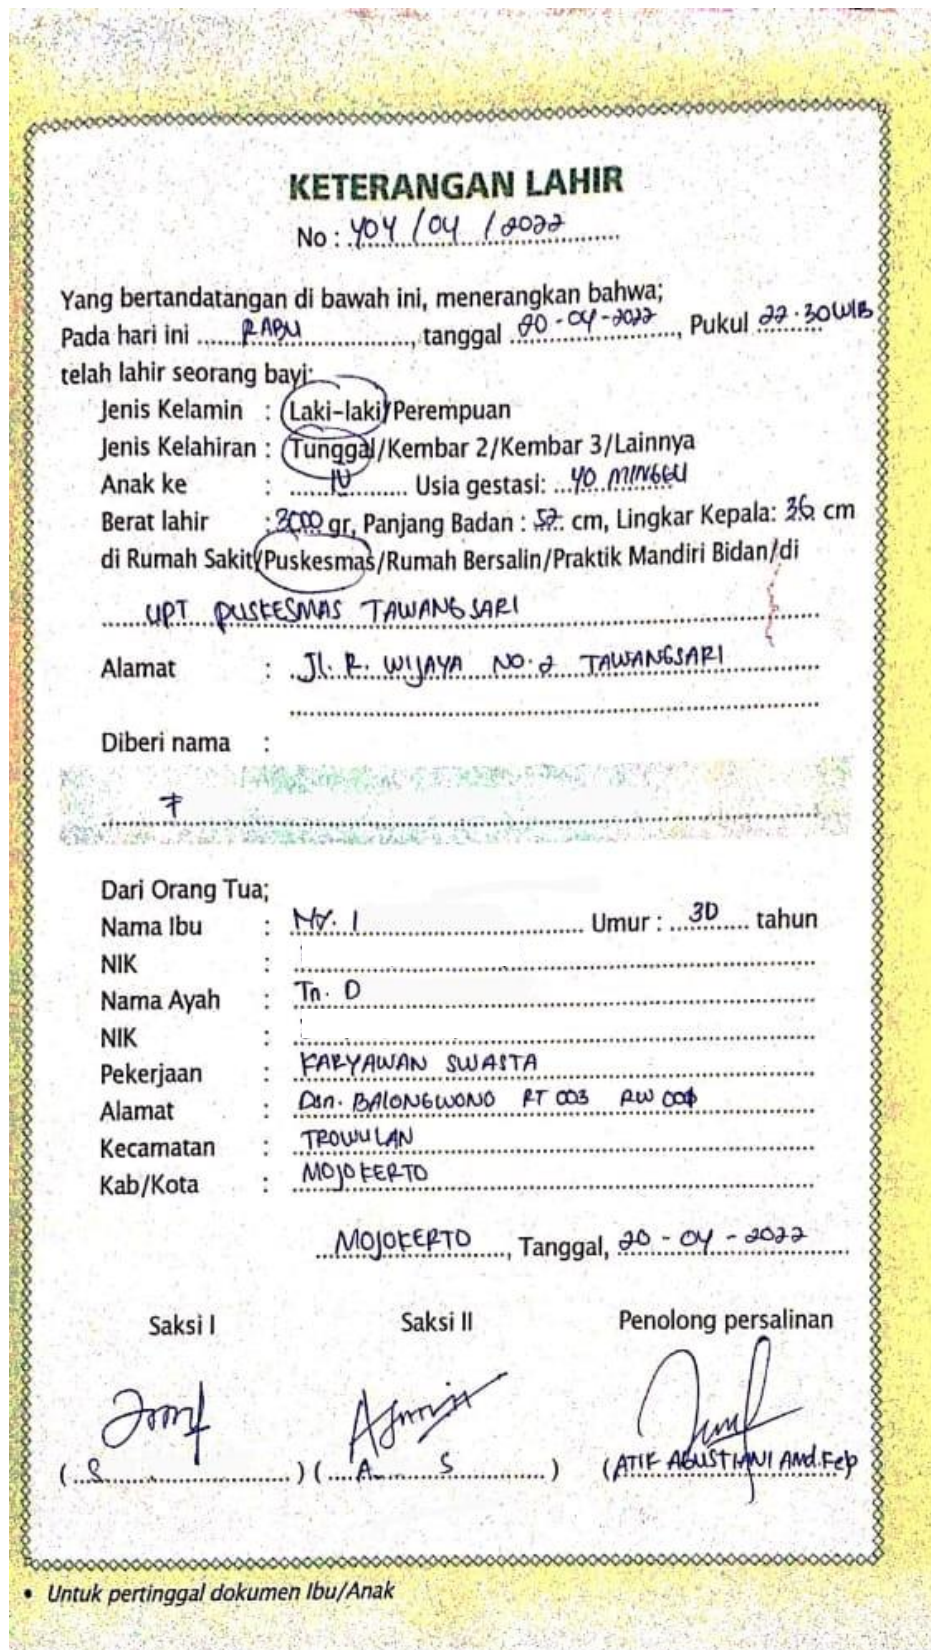 KETERANGAN LAHIR
No : 404 / 04 / 2022
Yang bertandatangan di bawah ini, menerangkan bahwa;
Pada hari ini RABU, tanggal 20-04-2022, Pukul 22.30 WIB
telah lahir seorang bayi:
Jenis Kelamin : Laki-laki/Perempuan
Jenis Kelahiran : Tunggal/Kembar 2/Kembar 3/Lainnya
Anak ke : IV Usia gestasi: 40 MINGGU
Berat lahir : 3000 gr, Panjang Badan : 52 cm, Lingkar Kepala: 36 cm
di Rumah Sakit/Puskesmas/Rumah Bersalin/Praktik Mandiri Bidan/di
UPT PUSKESMAS TAWANGSARI
Alamat : Jl. R. WIJAYA NO.2 TAWANGSARI
Diberi nama :
Dari Orang Tua;
Nama Ibu : NY. I Umur : 30 tahun
NIK :
Nama Ayah : Tn. D
NIK :
Pekerjaan : KARYAWAN SWASTA
Alamat : Dsn. BALONGWONO RT 003 RW
Kecamatan : TROWULAN
Kab/Kota : MOJOKERTO
MOJOKERTO, Tanggal, 20-04-2022
Saksi I Saksi II Penolong persalinan
( S ) ( A S ) (ATIF AGUSTIANI Amd.Kep
• Untuk pertinggal dokumen Ibu/Anak